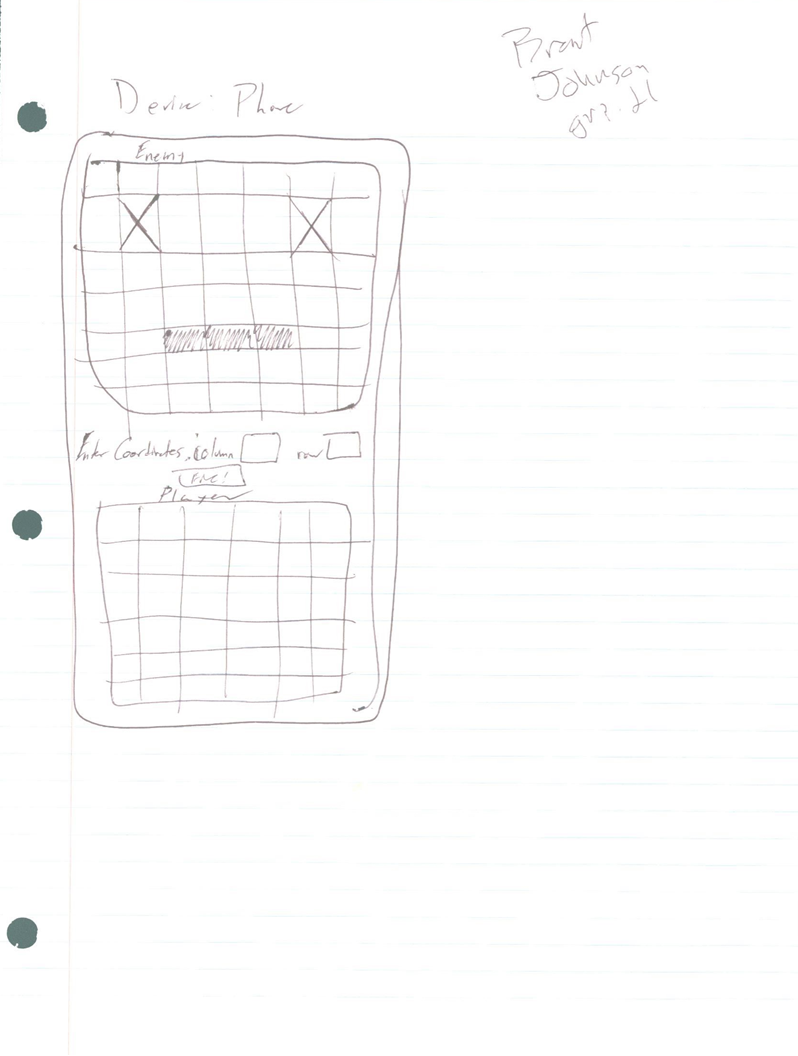 Brant
Johnson
Device: Phone
Enemy
Enter Coordinates: Column row
FIRE!
Player